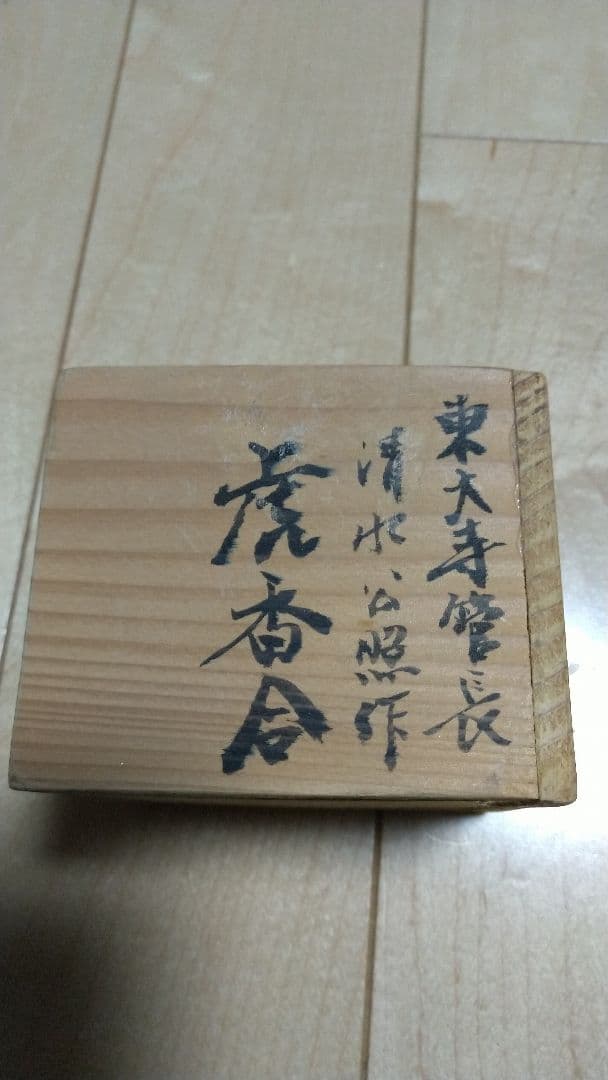 東大寺管長
清水公照作
虎香合